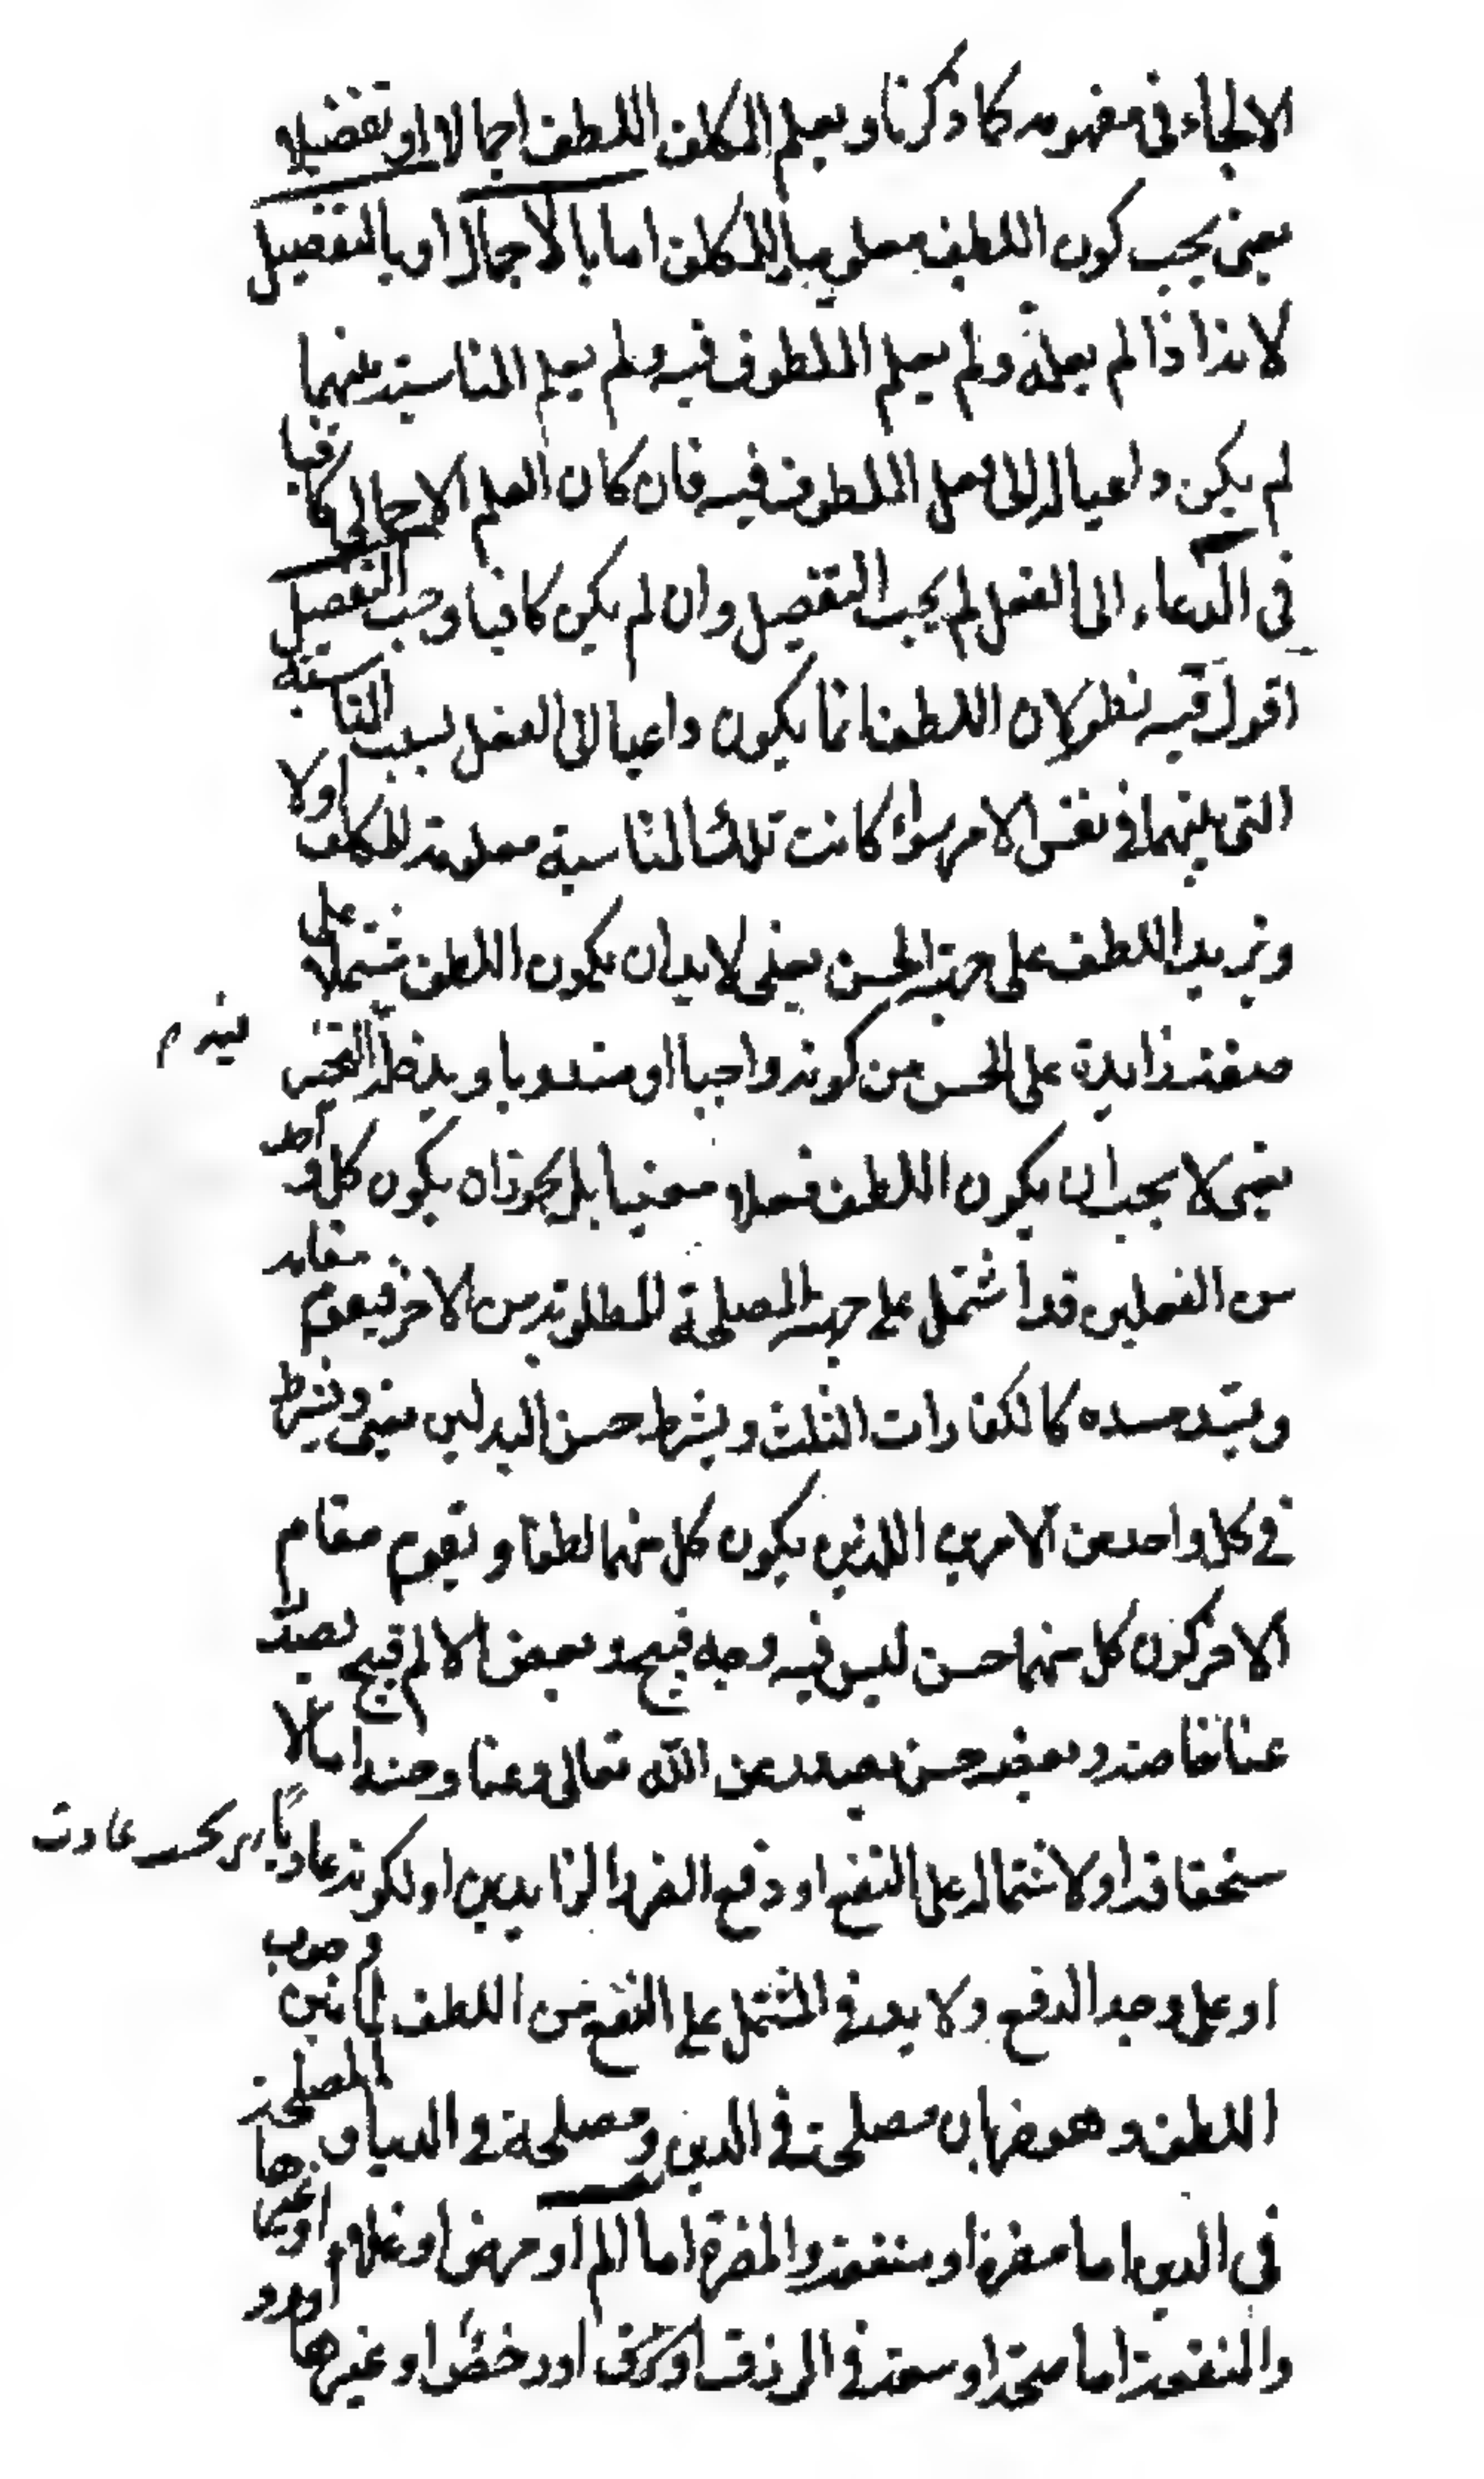 الالجاء في مفهومه كما ذكرنا ويعلم المكلف اللطف اجمالا او تفضيلا
يعنى يجب كون اللطف معلوما للمكلف اما بالاجمال او بالتفصيل
لانه اذا لم يعلمه ولم يعلم الملطوف فيه ولم يعلم المناسبة بينهما
لم يكن داعيا له الى فعل الملطوف فيه فان كان العلم الاجمالى كافيا
فى الدعاء الى الفعل لم يجب التفصيل وان لم يكن كافيا وجب التفصيل
اقول فيه نظر لان اللطف انما يكون داعيا الى الفعل بسبب المناسبة
التى بينهما فى نفس الامر سواء كانت تلك المناسبة معلومة للمكلف اولا
ويزيد اللطف على جهة الحسن يعنى لابد ان يكون اللطف مشتملا على
صفة زايدة على الحسن من كونه واجبا او مندوبا ويدخله التخير
يعنى لا يجب ان يكون اللطف فعلا معينا بل يجوز ان يكون كل واحد
من الفعلين قد اشتمل على جهة المصلحة المطلوبة من الاخر فيقوم مقامه
ويسد مسده كالكفارات الثلث ويشرط حسن البدلين يعنى ويشرط
فى كل واحد من الامرين اللذين يكون كل منهما لطفا ويقوم مقام
الاخر كون كل منهما حسن ليس فيه وجه قبيح وبعض الالم قبيح يصدر
عنا خاصة وبعضه حسن يصدر عن الله تعالى وعنا وحسنه اما لا
ستحقاقه او لاشتماله على النفع او دفع الضرر الزايدين او لكونه عاديا
او على وجه الدفع ولا بد فى المشتمل على النفع من اللطف لما بين وجوب
اللطف وهو ضربان مصلحة فى الدين ومصلحة فى الدنيا والمصلحة
فى الدين اما مضرة او منفعة والمضرة اما الم او مرض او غلاء او غيرها
والمنفعة اما صحة او سعة فى الرزق او رخص او غيرها